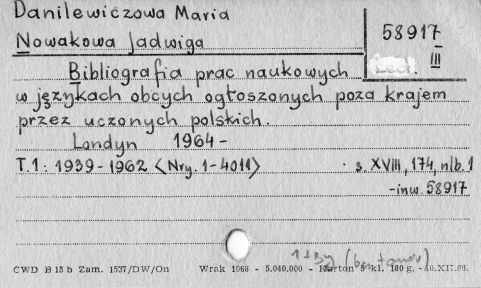 Danilewiczowa Maria
Nowakowa Jadwiga
58917
III
Bibliografia prac naukowych
w językach obcych ogłoszonych poza krajem
przez uczonych polskich.
Londyn 1964-
T.1: 1939-1962 <Nry. 1-4011> s. XVIII, 174, nlb. 1
-inw. 58917
CWD B 15 b Zam. 1537/DW/On Wrak 1068 - 5.040.000 - Karton 5 kl. 180 g. - 10.XII.68.